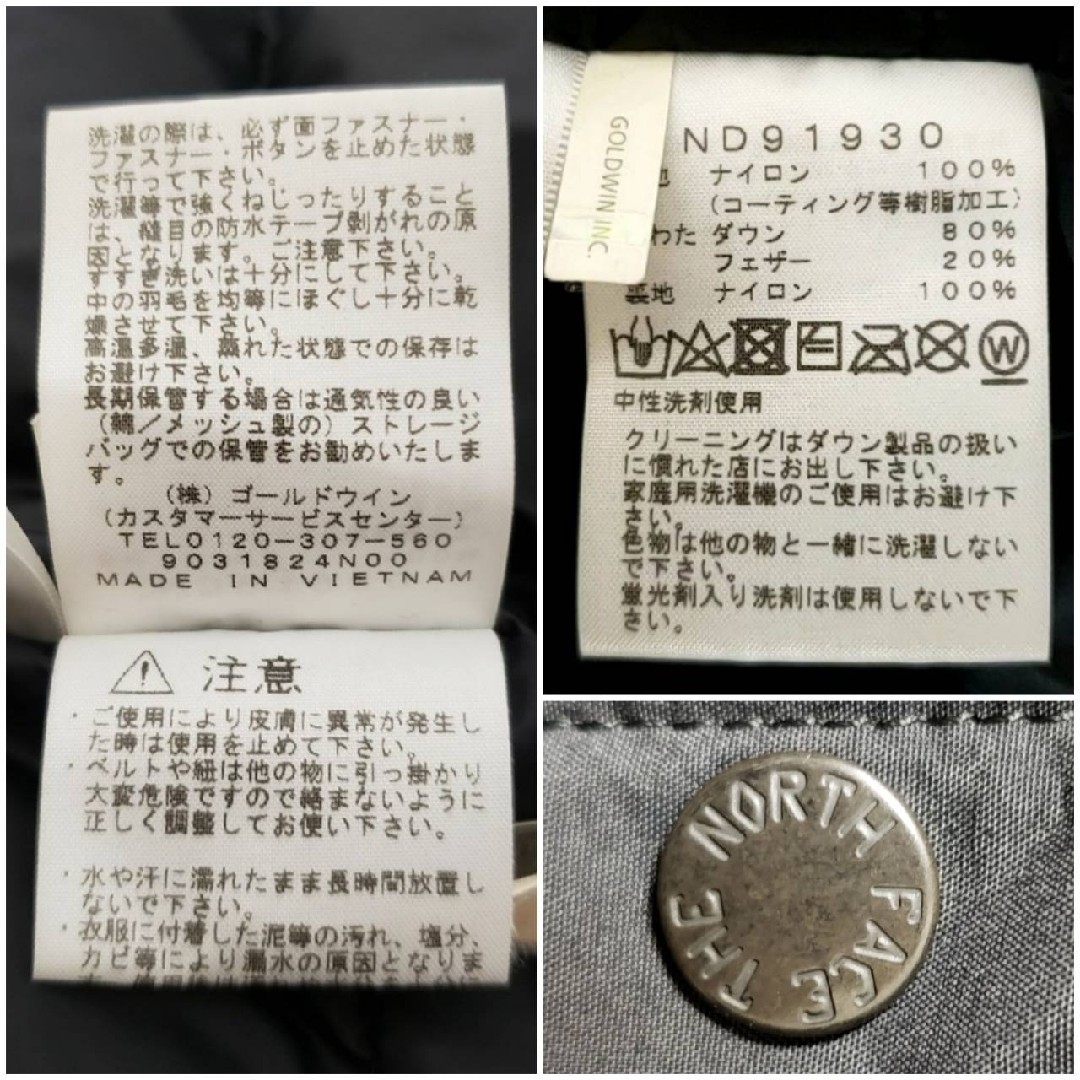 洗濯の際は、必ず面ファスナー・
ファスナー・ボタンを止めた状態
で行って下さい。
洗濯等で強くねじったりすること
は、縫目の防水テープ剥がれの原
因となります。ご注意下さい。
すすぎ洗いは十分にして下さい。
中の羽毛を均等にほぐし十分に乾
燥させて下さい。
高温多湿、蒸れた状態での保存は
お避け下さい。
長期保管する場合は通気性の良い
（綿／メッシュ製の）ストレージ
バッグでの保管をお勧めいたしま
す。
（株）ゴールドウイン
（カスタマーサービスセンター）
TEL0120-307-560
9031824N00
MADE IN VIETNAM
注意
・ご使用により皮膚に異常が発生し
た時は使用を止めて下さい。
・ベルトや紐は他の物に引っ掛かり
大変危険ですので絡まないように
正しく調整してお使い下さい。
・水や汗に濡れたまま長時間放置し
ないで下さい。
・衣服に付着した泥等の汚れ、塩分、
カビ等により漏水の原因となりま
GOLDWIN INC.
ND91930
地 ナイロン 100%
（コーティング等樹脂加工）
わた ダウン 80%
フェザー 20%
裏地 ナイロン 100%
W
中性洗剤使用
クリーニングはダウン製品の扱い
に慣れた店にお出し下さい。
家庭用洗濯機のご使用はお避け下
さい。
色物は他の物と一緒に洗濯しない
で下さい。
蛍光剤入り洗剤は使用しないで下
さい。
THE NORTH FACE